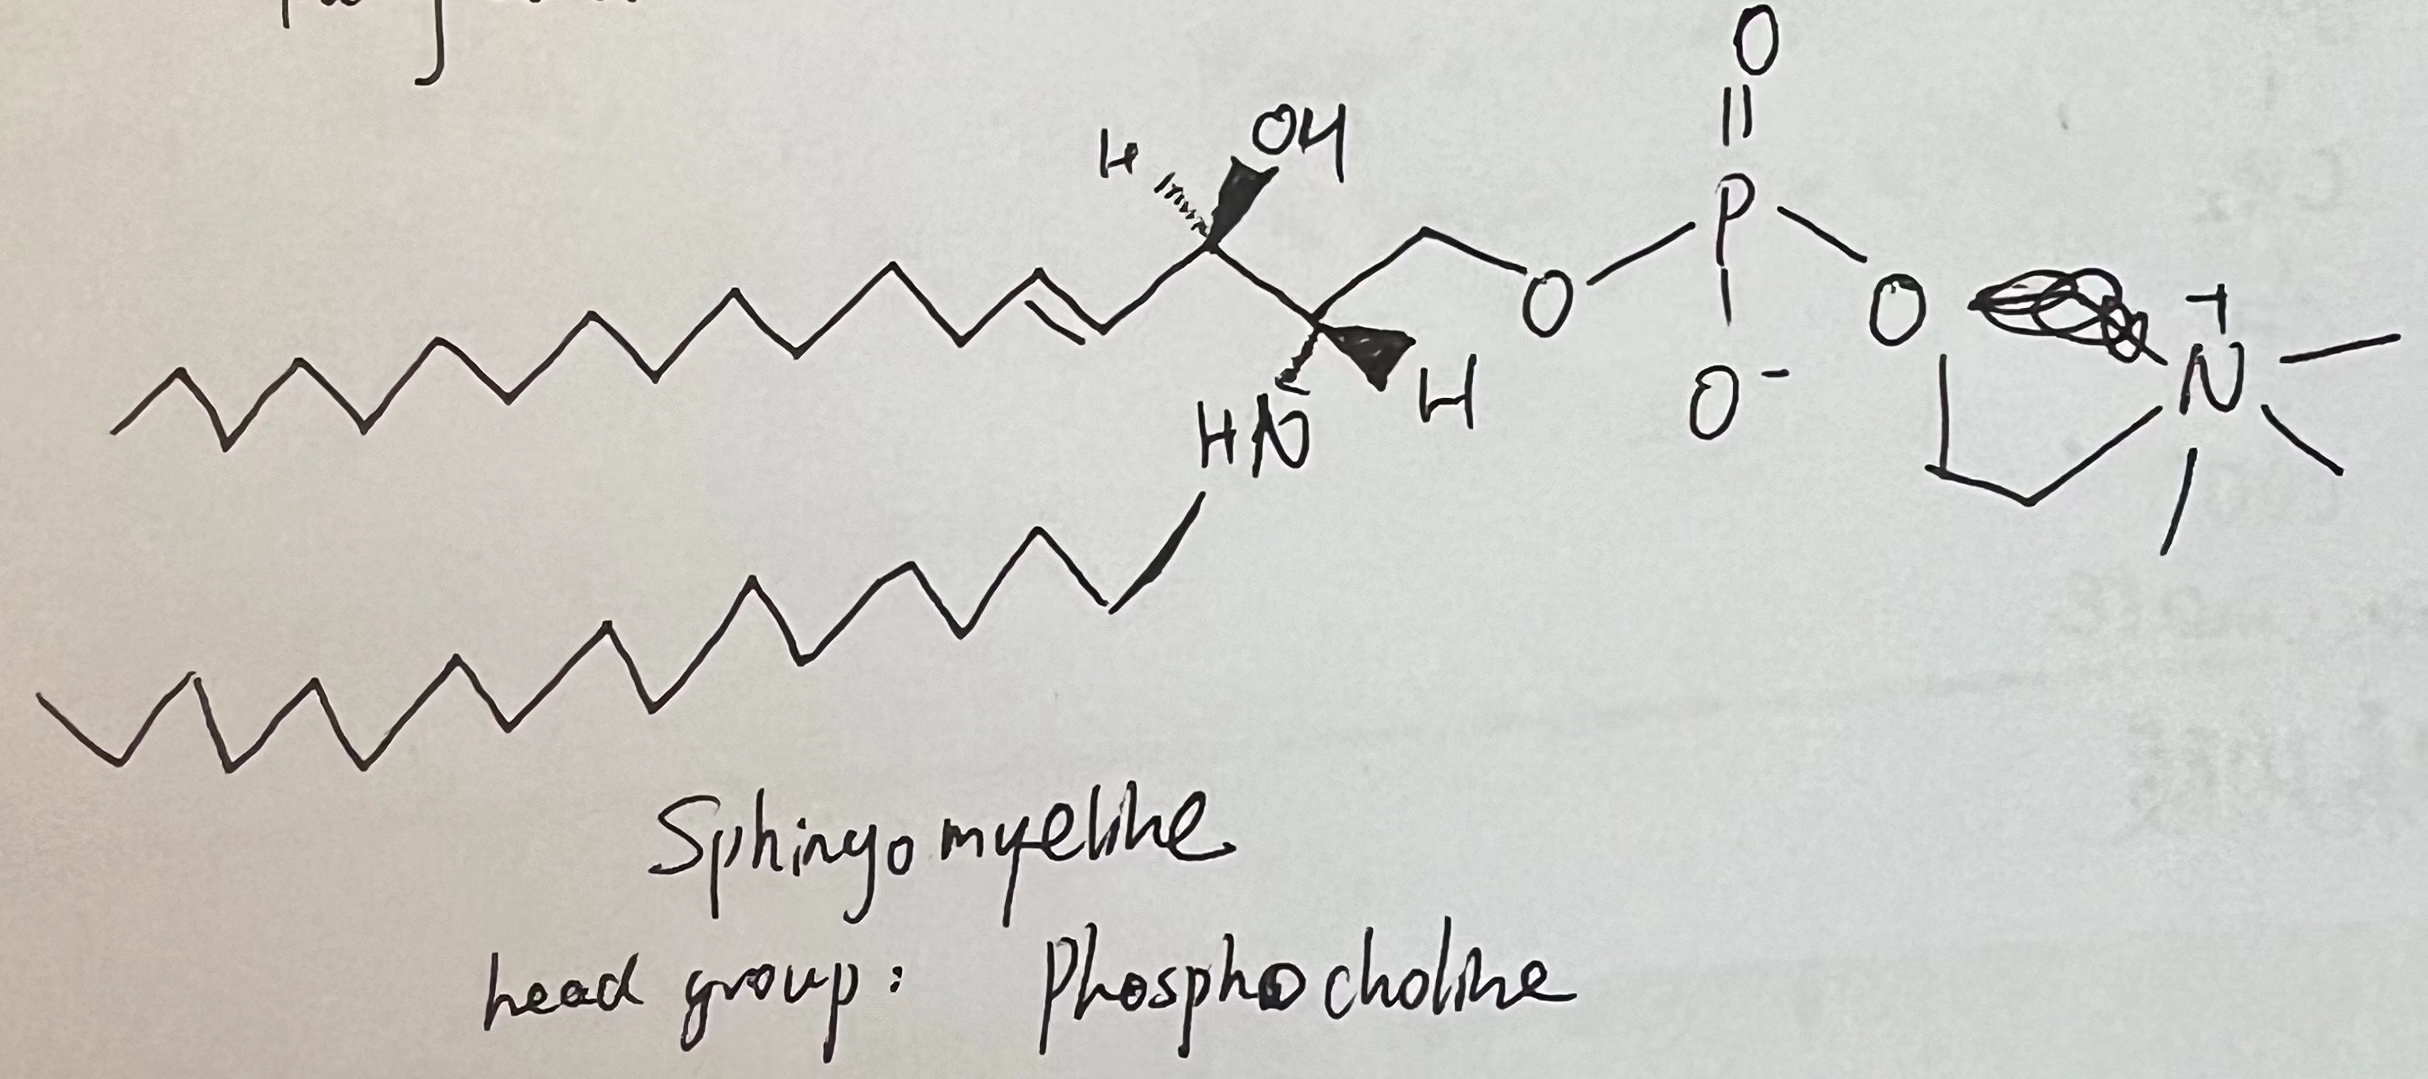 O
H OH
P
O O
N+
O-
HN H
Sphingomyeline
head group: Phosphocholine